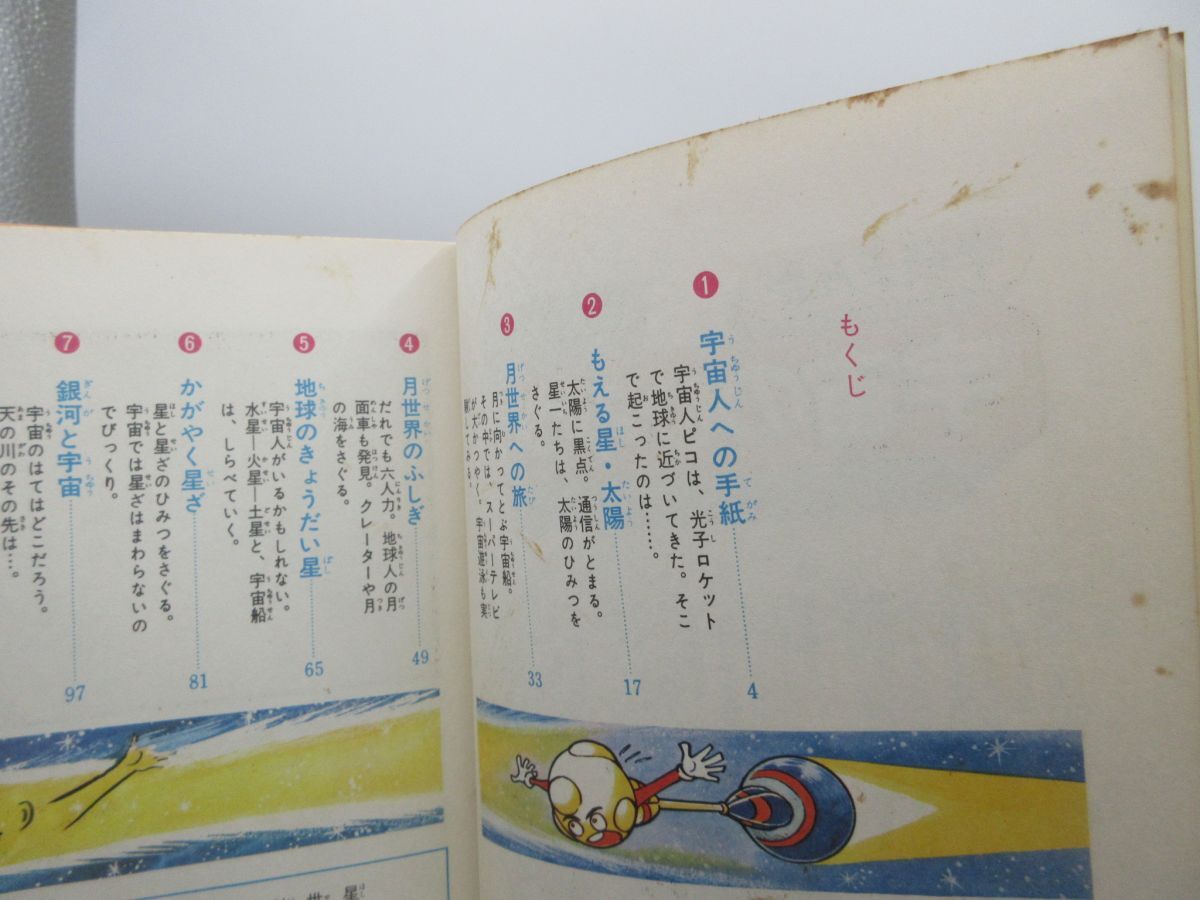 もくじ
1
宇宙人への手紙
4
宇宙人ピコは、光子ロケット
で地球に近づいてきた。そこ
で起こったのは……。
2
もえる星・太陽
17
太陽に黒点。通信がとまる。
星一たちは、太陽のひみつを
さぐる。
3
月世界への旅
33
月に向かってとぶ宇宙船。
その中では、スーパーテレビ
が大かつやく。宇宙遊泳も実
験してみる。
4
月世界のふしぎ
49
だれでも六人力。地球人の月
面車も発見。クレーターや月
の海をさぐる。
5
地球のきょうだい星
65
宇宙人がいるかもしれない。
水星―火星―土星と、宇宙船
は、しらべていく。
6
かがやく星ざ
81
星と星ざのひみつをさぐる。
宇宙では星ざはまわらないの
でびっくり。
7
銀河と宇宙
97
宇宙のはてはどこだろう。
天の川のその先は…。
星